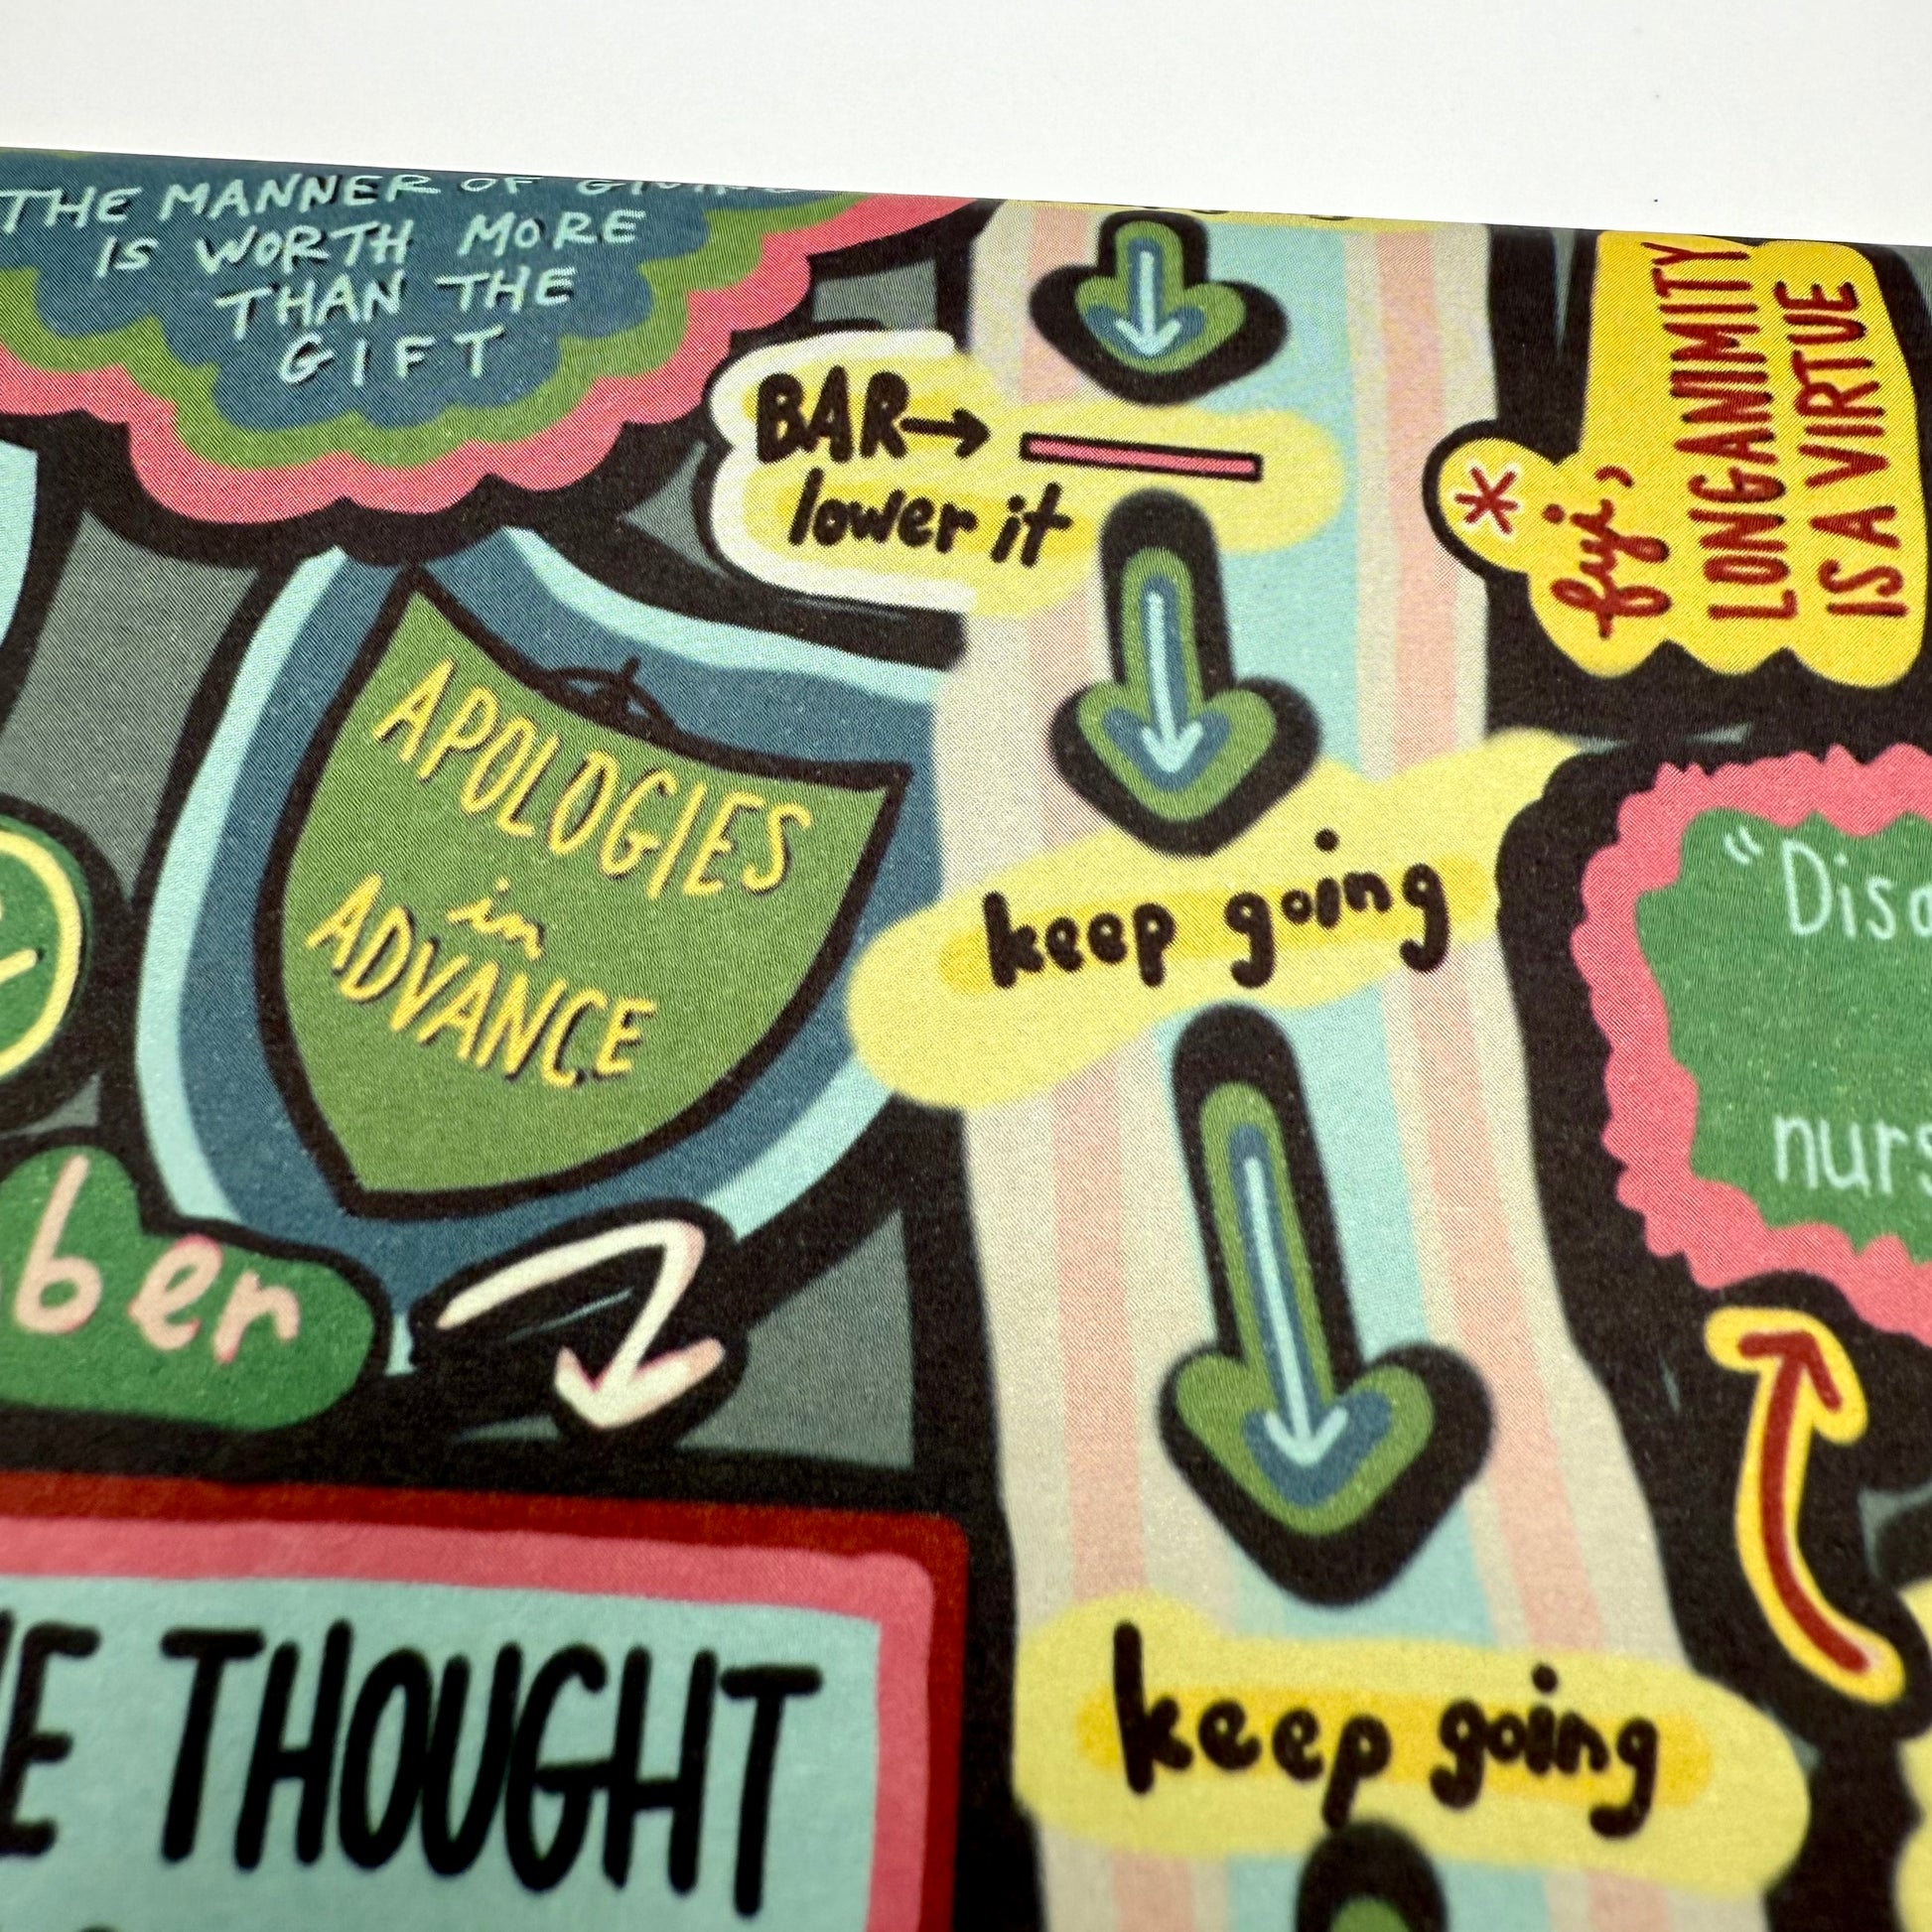 THE MANNER OF GIVING
IS WORTH MORE
THAN THE
GIFT
BAR→
lower it
* fyi,
LONGANIMITY
IS A VIRTUE
APOLOGIES
in
ADVANCE
keep going
"Disc
nurs
ber
THOUGHT
keep going